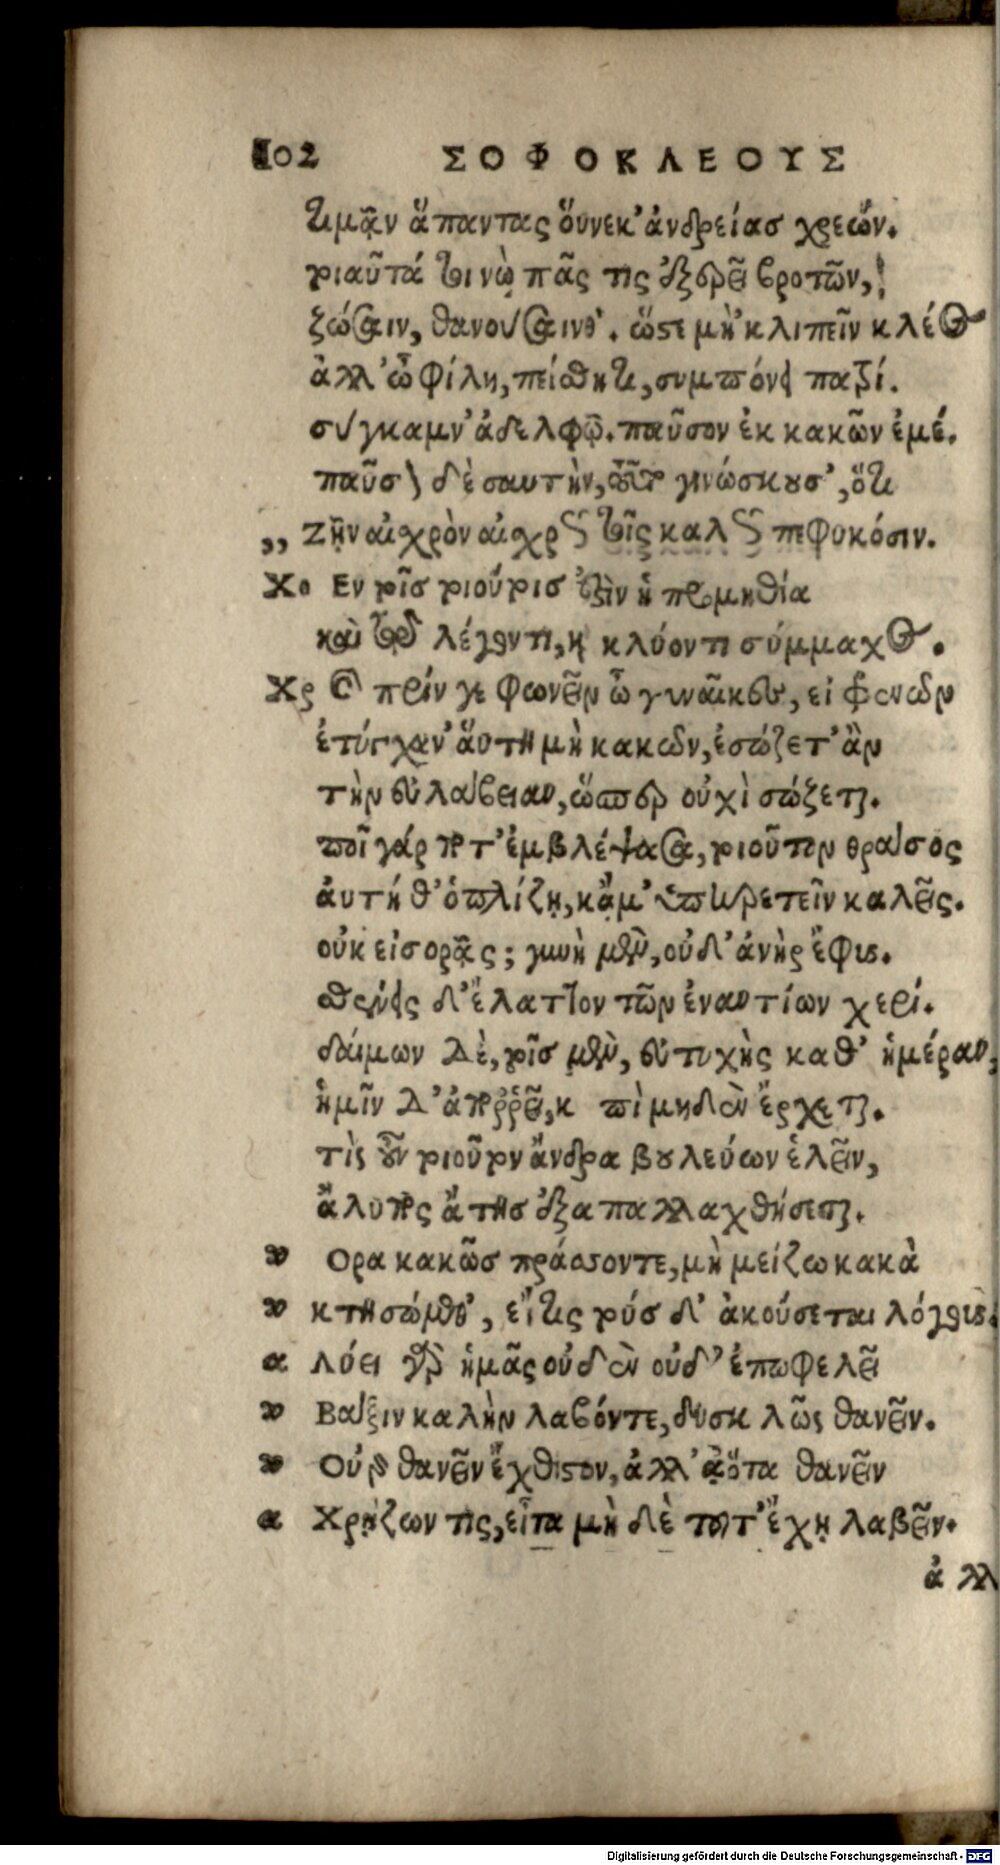 102 ΣΟΦΟΚΛΕΟΥΣ
τιμᾷν ἅπαντας ὅυνεκ' ἀνδρείασ χρεών.
τοιαῦτά τοι νὼ πᾶς τις ἐξερεῖ βροτῶν,
ζώσαιν, θανούσαινθ'. ὥστε μὴ 'κλιπεῖν κλέος
ἀλλ' ὦ φίλη, πείσθητι, συμπόνει πατρί.
σύγκαμν' ἀδελφῷ. παῦσον ἐκ κακῶν ἐμέ.
παῦσον δὲ σαυτὴν, τοῦτο γινώσκουσ', ὅτι
,, Ζῆν αἰχρὸν αἰχρῶς τοῖς καλῶς πεφυκόσιν.
Χο Εν τοῖσ τοιούτοισ ἐστὶν ἡ προμηθία
καὶ τῷ λέγοντι, καὶ κλύοντι σύμμαχος.
Χρ Καὶ πρίν γε φωνεῖν ὦ γυναῖκες, εἰ φρενῶν
ἐτύγχαν' ἅυτη μὴ κακῶν, ἐσώζετ' ἂν
τὴν εὐλάβειαν, ὥσπερ οὐχὶ σώζεται.
ποῖ γάρ ποτ' ἐμβλέψασα, τοιοῦτον θράσος
ἀυτή θ' ὁπλίζῃ, κἄμ' ὑπηρετεῖν καλεῖς.
οὐκ εἰσορᾷς; γυνὴ μὲν, οὐδ' ἀνὴρ ἔφυς.
σθένεις δ' ἔλαττον τῶν ἐναντίων χερί.
δάιμων δὲ, τοῖσ μὲν, εὐτυχὴς καθ' ἡμέραν,
ἡμῖν δ' ἀπορρεῖ, κἀπὶ μηδὲν ἔρχεται.
τὶς οὖν τοιοῦτον ἄνδρα βουλεύων ἑλεῖν,
ἄλυπος ἄτησ ἐξαπαλλαχθήσεται.
Ορα κακῶσ πράσσοντε, μὴ μείζω κακὰ
κτησώμεθ', εἴ τις τούσδ' ἀκούσεται λόγους.
λύει γὰρ ἡμᾶς οὐδὲν οὐδ' ἐπωφελεῖ
Βάξιν καλὴν λαβόντε, δυσκλεῶς θανεῖν.
Οὐ γὰρ θανεῖν ἔχθιστον, ἀλλ' ὅταν θανεῖν
Χρῄζων τις, εἶτα μὴ δὲ τοῦτ' ἔχῃ λαβεῖν.
ἀλλ
Digitalisierung gefördert durch die Deutsche Forschungsgemeinschaft - DFG